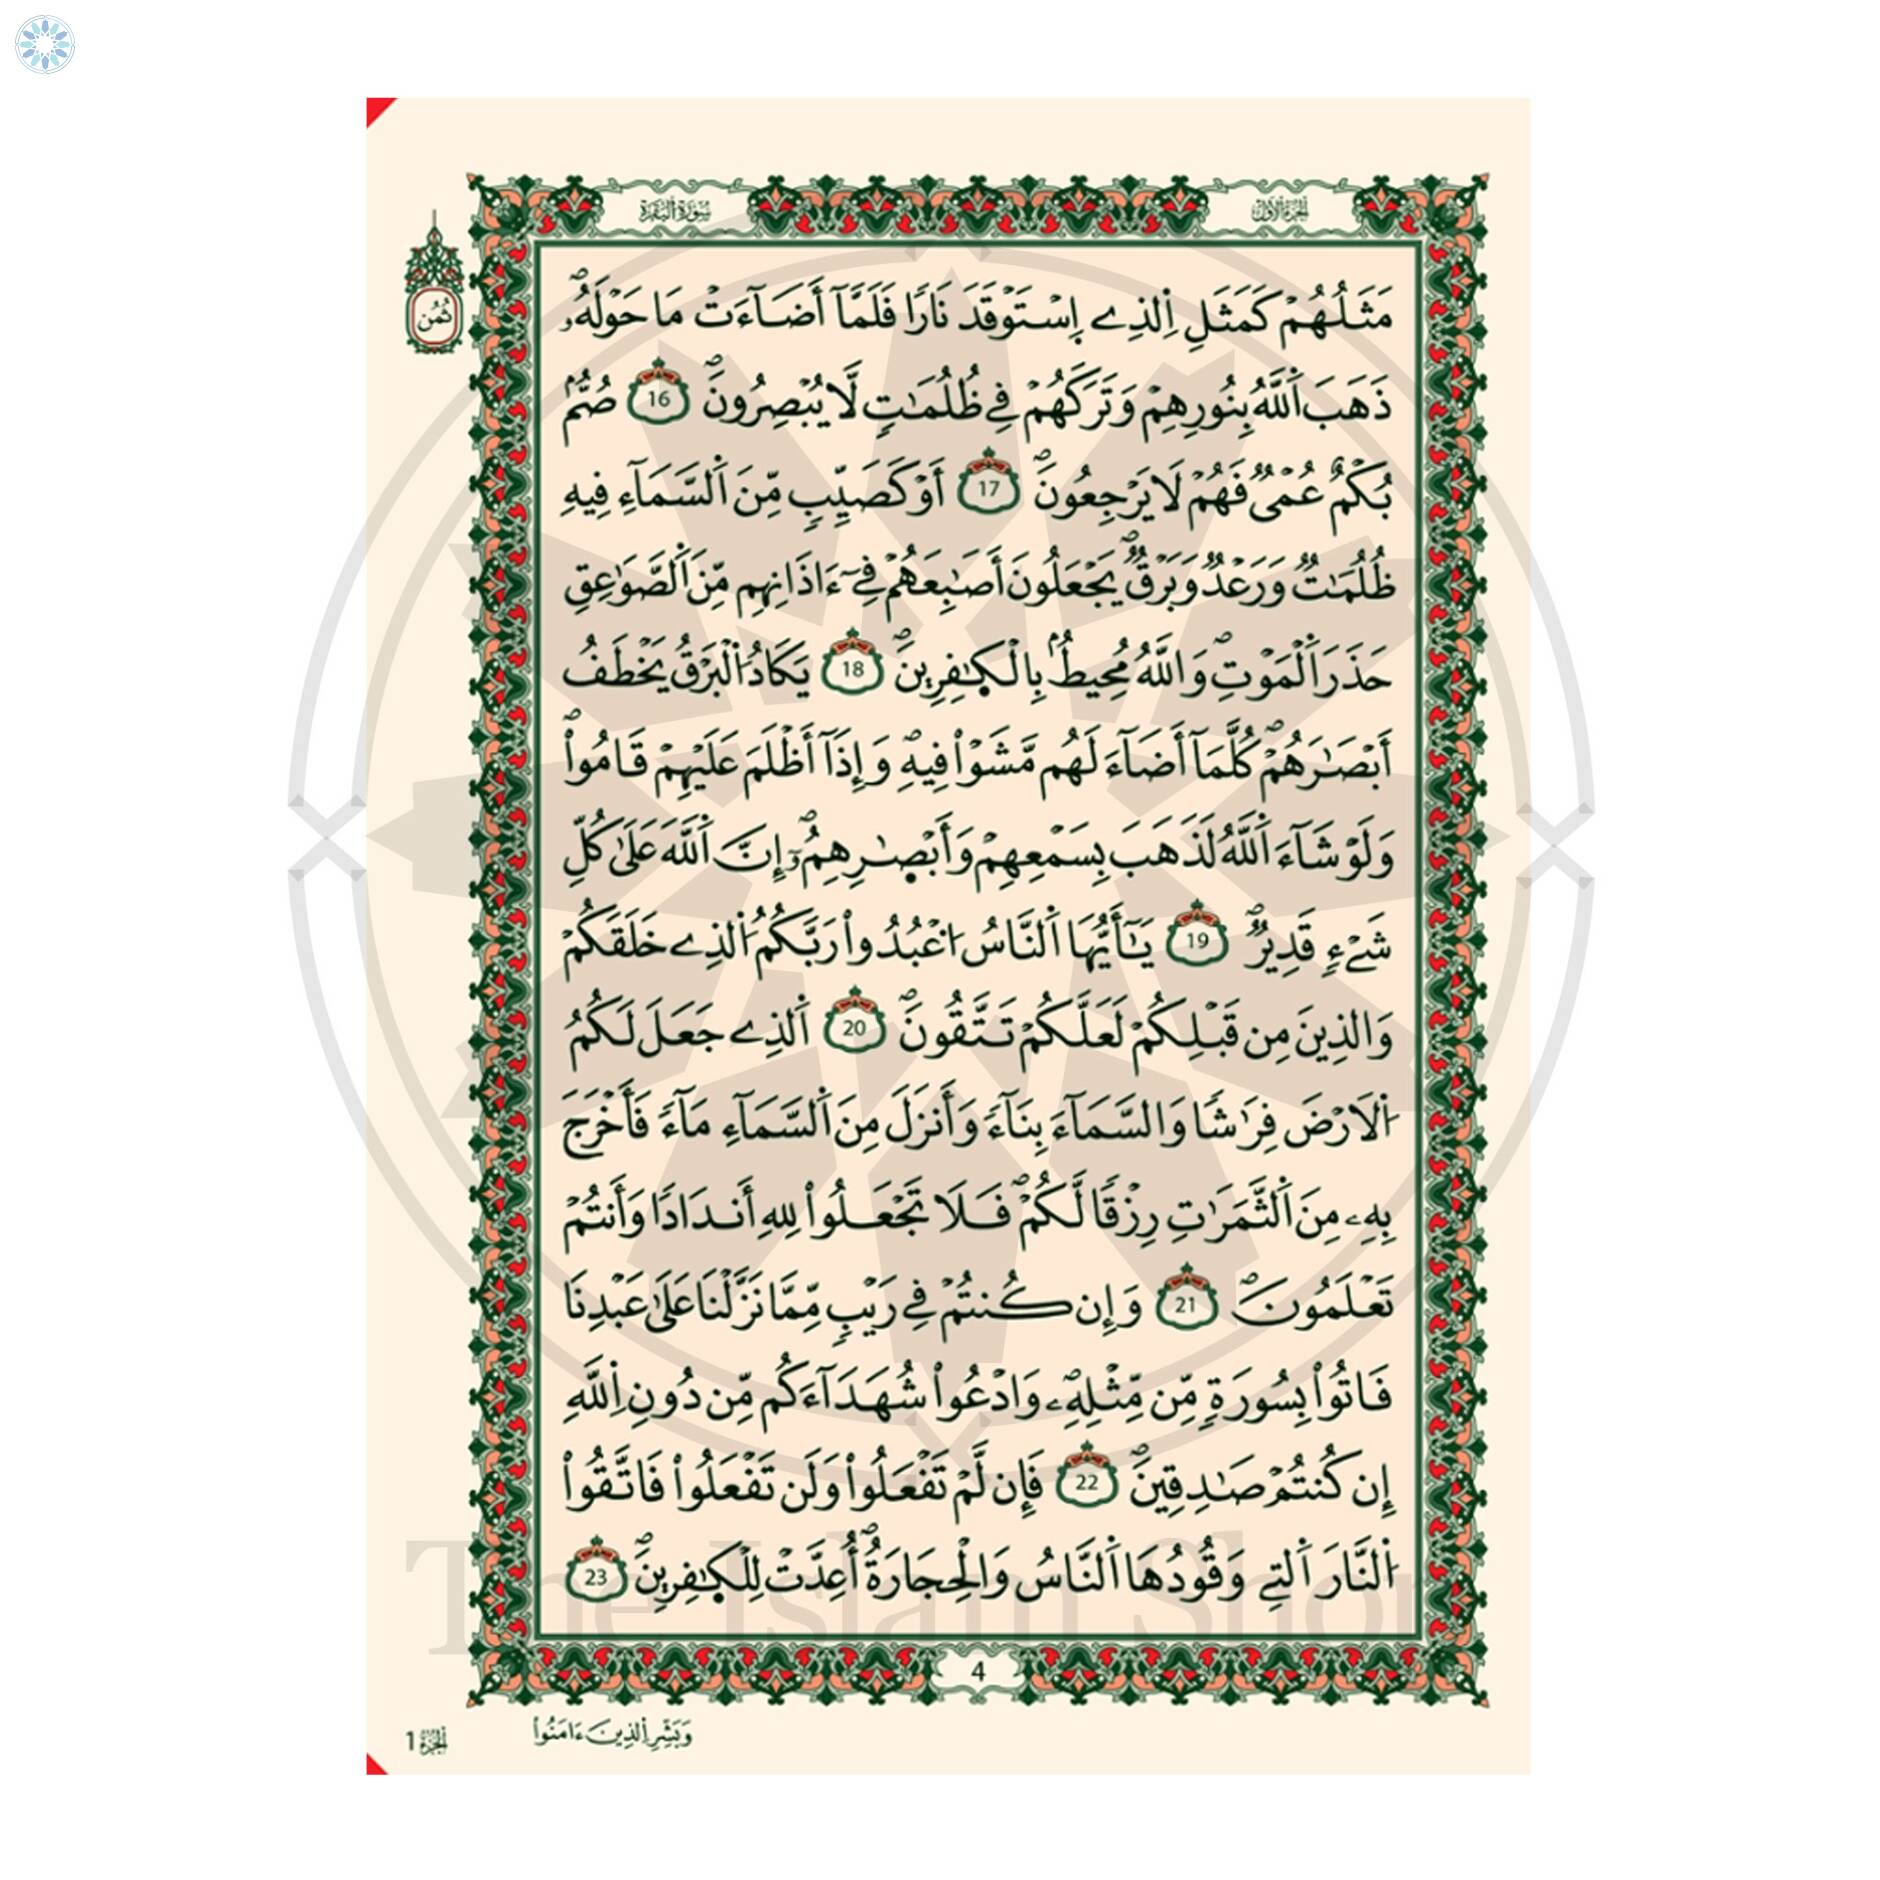 الجزء الأول
سورة البقرة
ثمن
مَثَلُهُمْ كَمَثَلِ اِ۬لذِے اِ۪سْتَوْقَدَ نَاراٗ فَلَمَّآ أَضَآءَتْ مَا حَوْلَهُۥۖ
ذَهَبَ اَ۬للَّهُ بِنُورِهِمْ وَتَرَكَهُمْ فِے ظُلُمَٰتٖ لَّا يُبْصِرُونَۖ 16 صُمُّۢ
بُكْمٌ عُمْيٞ فَهُمْ لَا يَرْجِعُونَۖ 17 أَوْ كَصَيِّبٖ مِّنَ اَ۬لسَّمَآءِ فِيهِ
ظُلُمَٰتٞ وَرَعْدٞ وَبَرْقٞۖ يَجْعَلُونَ أَصَٰبِعَهُمْ فِےٓ ءَاذَانِهِم مِّنَ اَ۬لصَّوَٰعِقِ
حَذَرَ اَ۬لْمَوْتِۖ وَاللَّهُ مُحِيطُۢ بِالْكٰ۪فِرِينَۖ 18 يَكَادُ اُ۬لْبَرْقُ يَخْطَفُ
أَبْصَٰرَهُمْۖ كُلَّمَآ أَضَآءَ لَهُم مَّشَوْاْ فِيهِۖ وَإِذَآ أَظْلَمَ عَلَيْهِمْ قَامُواْۖ
وَلَوْ شَآءَ اَ۬للَّهُ لَذَهَبَ بِسَمْعِهِمْ وَأَبْصٰ۪رِهِمُۥٓۖ إِنَّ اَ۬للَّهَ عَلَىٰ كُلِّ
شَےْءٖ قَدِيرٞۖ 19 يَٰٓأَيُّهَا اَ۬لنَّاسُ اُ۟عْبُدُواْ رَبَّكُمُ اُ۬لذِے خَلَقَكُمْ
وَالذِينَ مِن قَبْلِكُمْ لَعَلَّكُمْ تَتَّقُونَۖ 20 اَ۬لذِے جَعَلَ لَكُمُ
اُ۬لَارْضَ فِرَٰشاٗ وَالسَّمَآءَ بِنَآءٗ وَأَنزَلَ مِنَ اَ۬لسَّمَآءِ مَآءٗ فَأَخْرَجَ
بِهِۦ مِنَ اَ۬لثَّمَرَٰتِ رِزْقاٗ لَّكُمْۖ فَلَا تَجْعَلُواْ لِلهِ أَندَاداٗ وَأَنتُمْ
تَعْلَمُونَۖ 21 وَإِن كُنتُمْ فِے رَيْبٖ مِّمَّا نَزَّلْنَا عَلَىٰ عَبْدِنَا
فَاتُواْ بِسُورَةٖ مِّن مِّثْلِهِۦۖ وَادْعُواْ شُهَدَآءَكُم مِّن دُونِ اِ۬للَّهِ
إِن كُنتُمْ صَٰدِقِينَۖ 22 فَإِن لَّمْ تَفْعَلُواْ وَلَن تَفْعَلُواْ فَاتَّقُواْ
اُ۬لنَّارَ اَ۬لتِے وَقُودُهَا اَ۬لنَّاسُ وَالْحِجَارَةُۖ أُعِدَّتْ لِلْكٰ۪فِرِينَۖ 23
4
وَبَشِّرِ اِ۬لذِينَ ءَامَنُواْ
الجزء 1
The Islam Shop